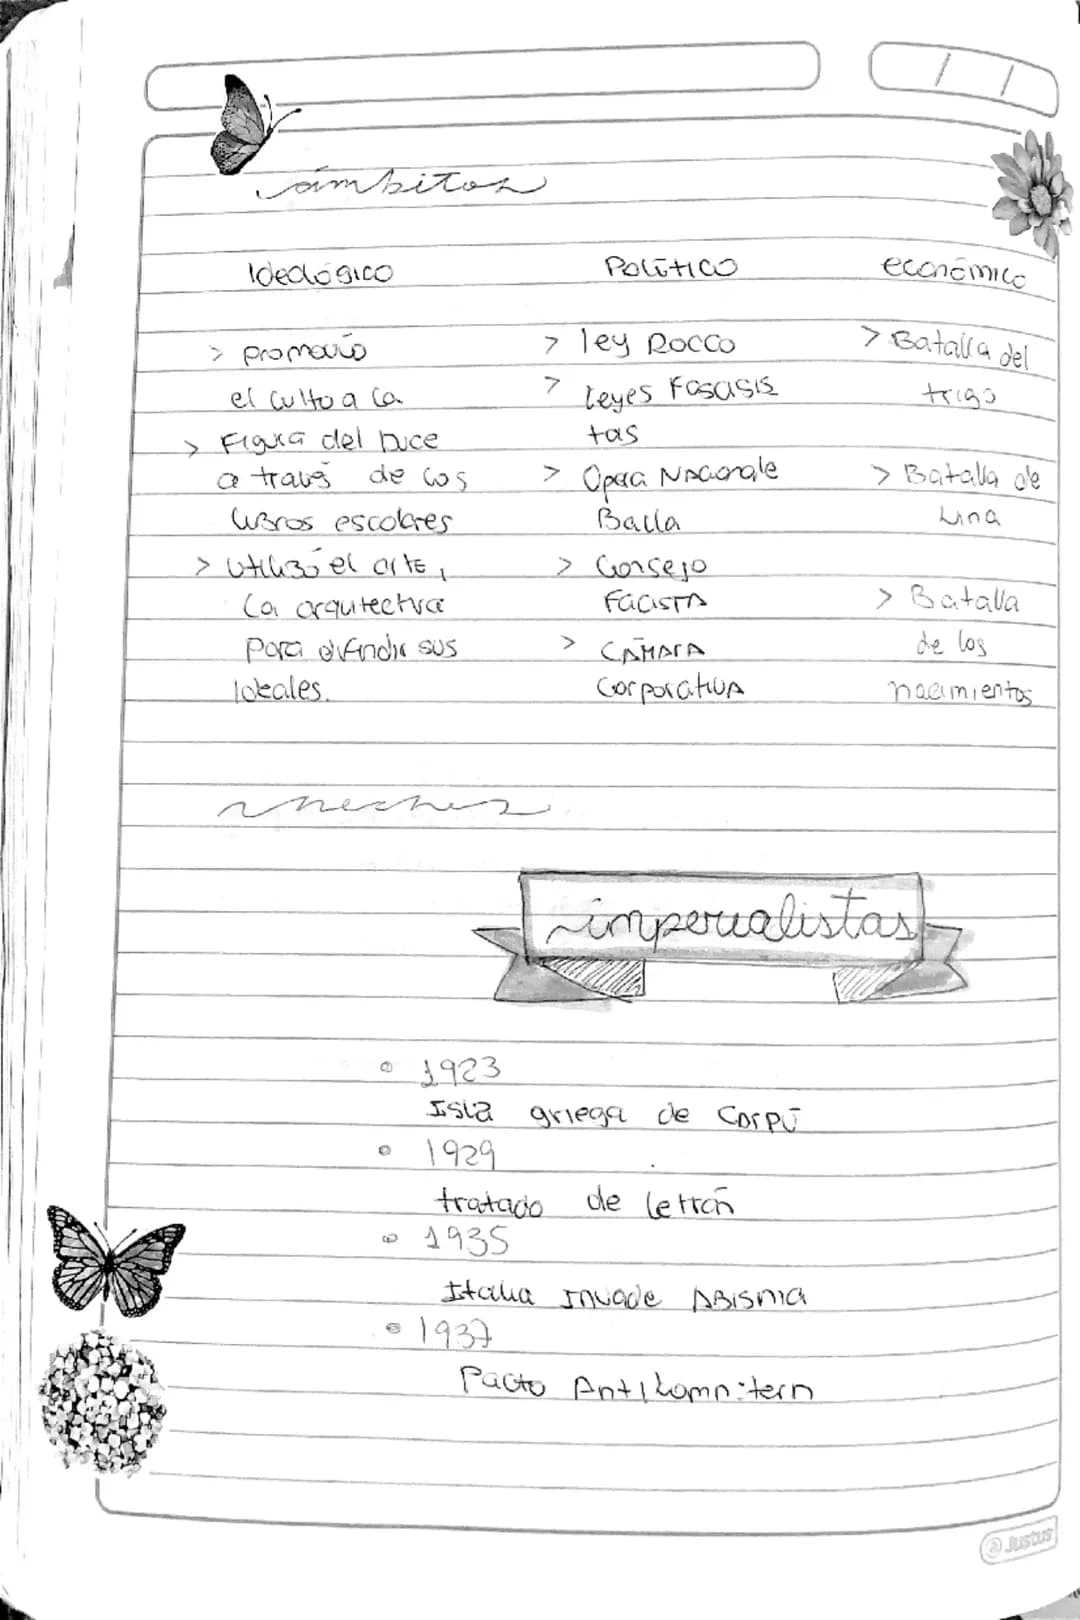 ámbitos
Ideológico
Político
económico
> promovió
el culto a la
> Figura del Duce
a través de los
libros escolares
> Utilizó el arte,
la arquitectura
para difindir sus
ideales.
> ley Rocco
> leyes Fasasis
tas
> Opera Nacionale
Balla
> Consejo
Facista
> Cámara
Corporativa
> Batalla del
trigo
> Batalla de
Lira
> Batalla
de los
nacimientos
imperialistas
1923
Isla griega de Corpú
1929
tratado de letrán
1935
Italia Invade Abisnia
1937
Pacto Antikomnitern
@Justus